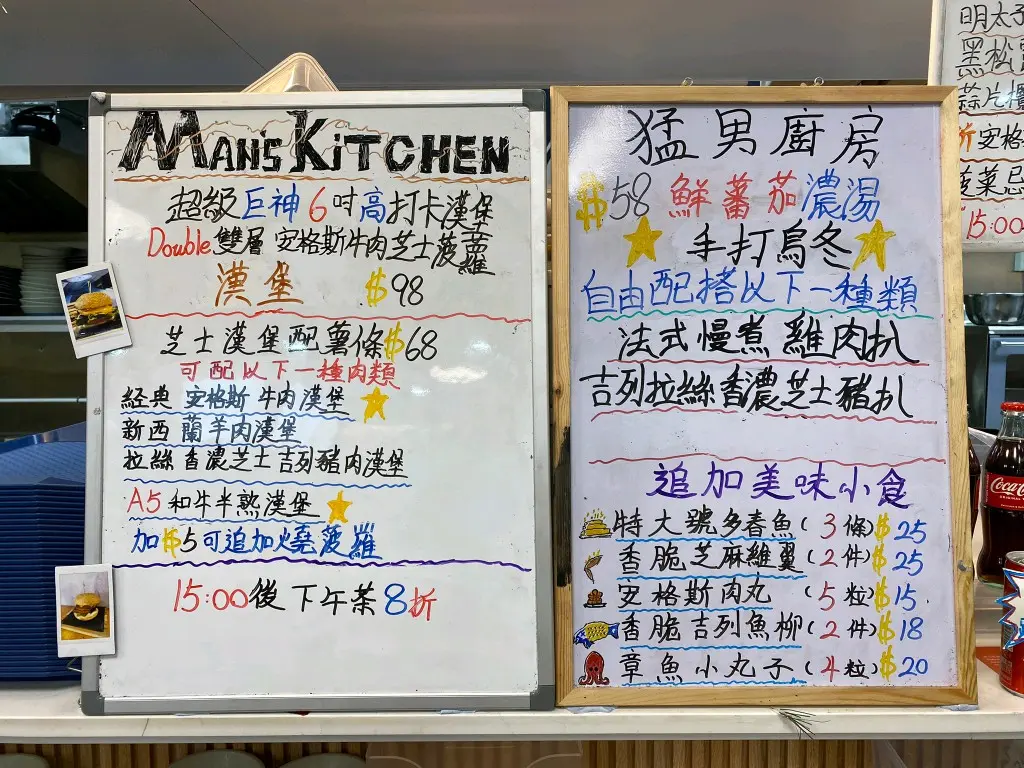 MAN'S KITCHEN
超級巨神6吋高打卡漢堡
Double雙層安格斯牛肉芝士菠蘿
漢堡 $98
芝士漢堡配薯條$68
可配以下一種肉類
経典 安格斯牛肉漢堡
新西蘭羊肉漢堡
拉絲香濃芝士吉列豬肉漢堡
A5和牛半熟漢堡
加$5可追加燒菠蘿
15:00後下午茶8折
猛男廚房
$58 鮮蕃茄濃湯
手打烏冬
自由配搭以下一種類
法式慢煮雞肉扒
吉列拉絲香濃芝士豬扒
追加美味小食
特大號多春魚(3條)$25
香脆芝麻雞翼(2件)$25
安格斯肉丸(5粒)$15
香脆吉列魚柳(2件)$18
章魚小丸子(4粒)$20
明太子
黑松
蒜片
折安格
菠菜忌
15:00
Coca-Cola